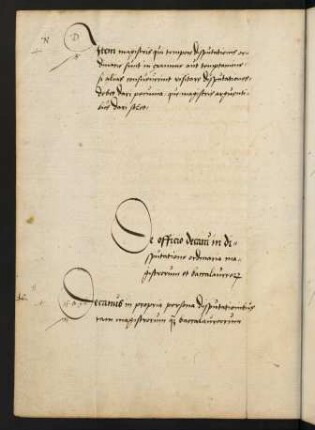 N D
Item magistris qui tempore disputationis or-
dinarie sunt in examine aut temptamine
si alias consueverunt visitare disputationes
debet dari pecunia que magistris arguenti-
bus dari solet
De officio decani in di-
sputatione ordinaria ma-
gistrorum et baccalaureorum
Decanus in propria persona disputationibus
tam magistrorum quam baccalaureorum